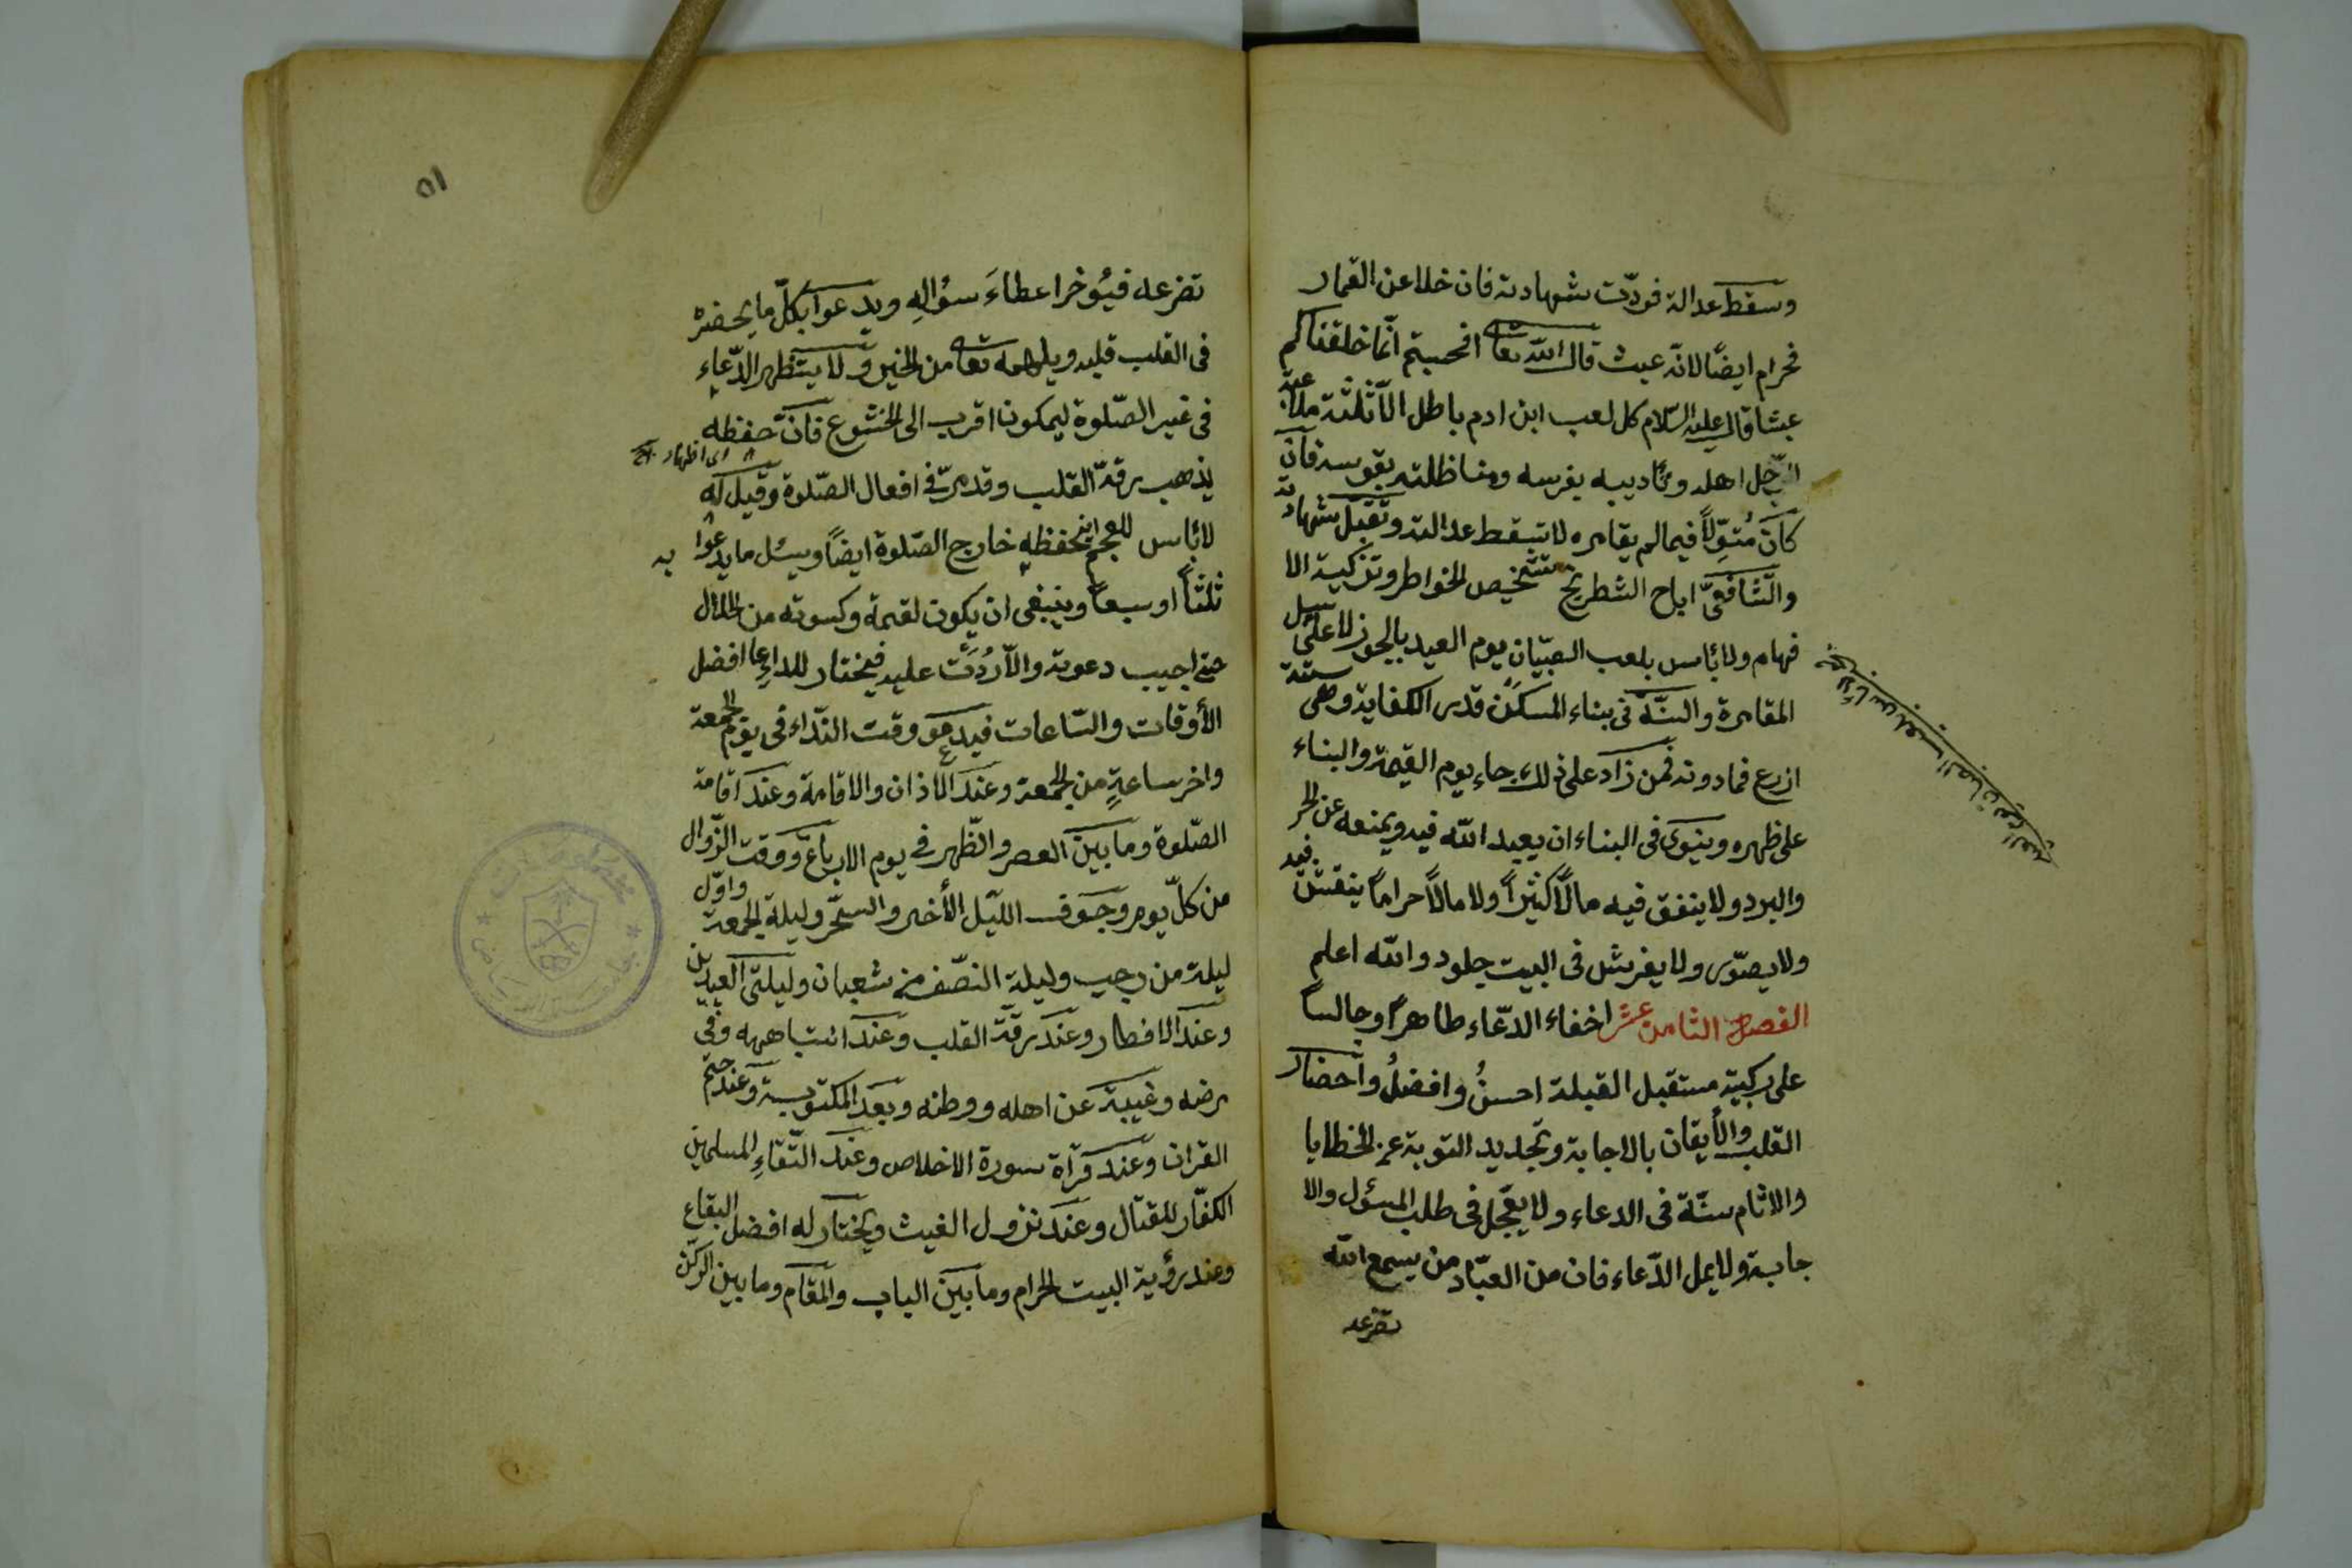 وسقط عدالة فردّت شهادته فان خلا عن القمار
فحرام ايضًا لانّه عبث قال الله تعا افحسبتم انّما خلقناكم
عبثا قال عليه السّلام كل لعب ابن ادم باطل الّا ثلثة ملاعبة
الرّجل اهله وتأديبه بفرسه ومناظلته بقوسه فان
كان مُتوّلاً فيما لم يقامره لا تسقط عدالته وتقبل شهادته
والشّافعىّ اباح الشطرنج تشخيص الخواطر وتزكية الا
فهام ولا بأس بلعب الصبيّان يوم العيد بالجوز لا على سبيل
المقامرة والسنّة فى بناء المسكن قدر الكفاية وهى ستة
ازرع فمادونه فمن زاد على ذلك جاء يوم القيمة والبناء
على ظهره وينوى فى البناء ان يعبد الله فيه ويمنعه عن الحر
والبرد ولا ينفق فيه مالًا كثيرًا ولا مالًا حرامًا ينقش فيه
ولا يصوّر ولا يفرش فى البيت جلود والله اعلم
الفصل الثامن عشر اخفاء الدّعاء طاهرًا وجالسًا
على ركبيته مستقبل القبلة احسنُ وافضلُ واحضار
القلب والأيقان بالاجابة وتجديد التوبة عن الخطايا
والاثام سنّة فى الدعاء ولا يعجّل فى طلب المسئول والا
جابة ولا يمل الدّعاء فان من العبّاد من يسمع الله
تضرعه
لا بأس بلعب الصبيان يوم العيد
٥١
تضرعه فيُؤخر اعطاءَ سؤالِهِ ويدعوا بكلّ ما يحضره
فى القلب قلبه ويلهمه تعا من الخير ولا يستظهر الدّعاء
فى غير الصّلوة ليكون اقرب الى الخشوع فانّ حفظه
اى اظهار
يذهب برقّة القلب وقد مرّ فى افعال الصّلوة وقيل انّه
لا بأس للعجم بحفظه خارج الصّلوة ايضًا ويسئل ما يدعوا به
ثلثاً او سبعاً وينبغى ان يكون لقمة وكسوته من الحلال
حتى اجيب دعوته والّا رُدّت عليه فيختار للداعى افضل
الأوقات والسّاعات فيدعو وقت النّداء فى يوم الجمعة
واخر ساعةٍ من الجمعة وعند الاذان والاقامة وعند اقامة
الصّلوة وما بين العصر والظّهر فى يوم الاربعاء ووقت الزّوال
من كلّ يوم وجوف اللّيل الأخير والسّحر وليلة الجمعة واوّل
ليلة من رجب وليلة النصّف من شعبان وليلتى العيدين
وعند الافطار وعند رقّة القلب وعند انتباهه وفى
مرضه وغيبة عن اهله ووطنه وبعد المكتوبة وعند ختم
القران وعند قرأة سورة الاخلاص وعند التقاء المسلمين
الكفّار للقتال وعند نزول الغيث ويختار له افضل البقاع
وعند رؤية البيت الحرام وما بين الباب والمقام وما بين الركن